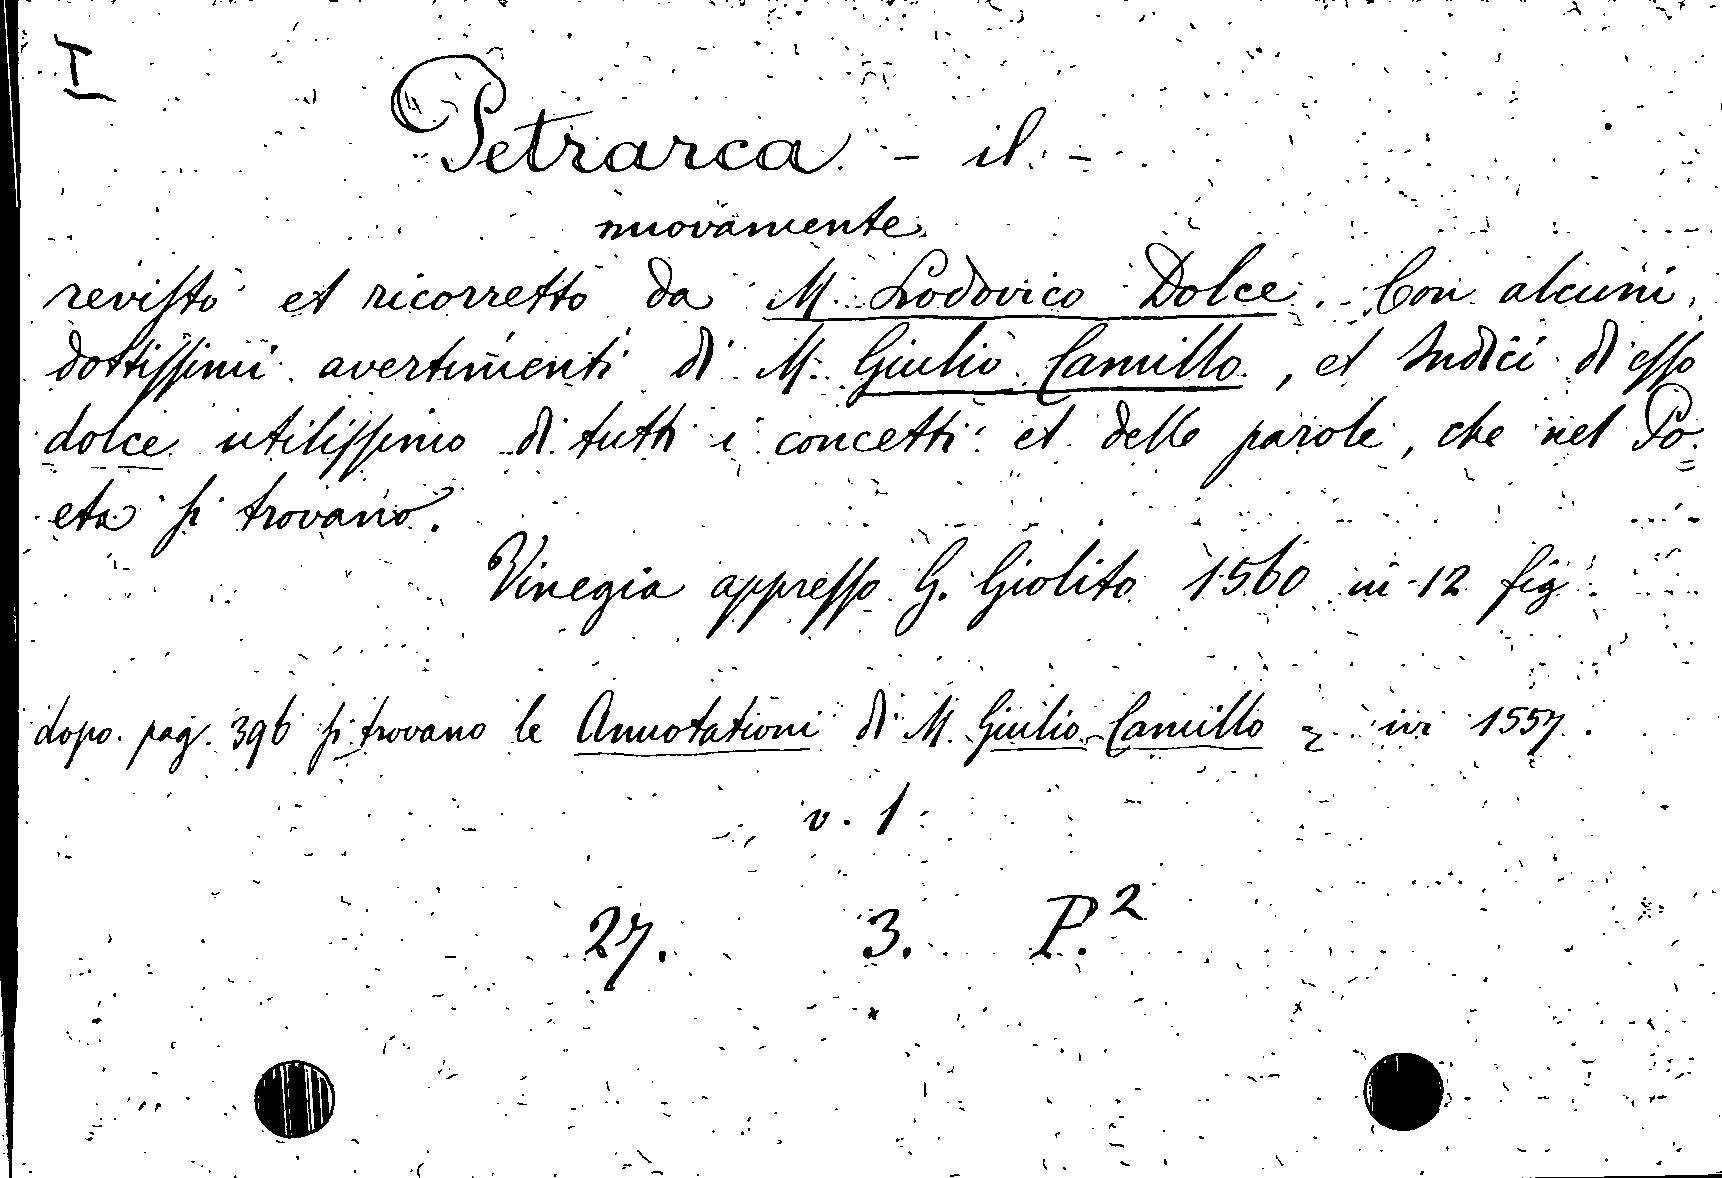 I
Petrarca - il -
nuovamente
revisto et ricorretto da M. Lodovico Dolce. Con alcuni
dottissimi avertimenti di M. Giulio Camillo, et Indici di esso
dolce utilissimo di tutti i concetti et delle parole, che nel Po=
eta si trovano.
Vinegia appresso G. Giolito 1560 in 12 fig
dopo pag. 396 si trovano le Annotationi di M. Giulio Camillo = ivi 1557.
v. 1
27. 3. P.²